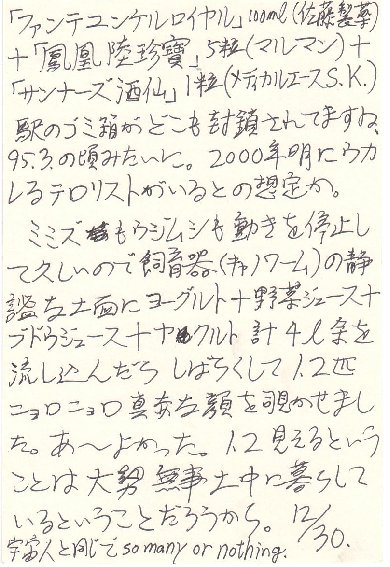 「ファンテユンケルロイヤル」100ml(佐藤製薬)
+「鳳凰陸珍寶」5粒(マルマン)+
「サンナーズ酒仙」1粒(メディカルエースS.K.)
駅のゴミ箱がどこも封鎖されてますね、
95.3.の頃みたいに。2000年明にウカ
レるテロリストがいるとの想定か。
ミミズもウジムシも動きを停止し
て久しいので飼育器(キャノワーム)の静
謐な土面にヨーグルト+野菜ジュース+
ブドウジュース+ヤクルト計4l余を
流し込んだら しばらくして1.2匹
ニョロニョロ真赤な顔を覗かせまし
た。あ〜よかった。1.2見えるという
ことは大勢無事土中に暮らして
いるということだろうから。12/30.
宇宙人と同じで so many or nothing.